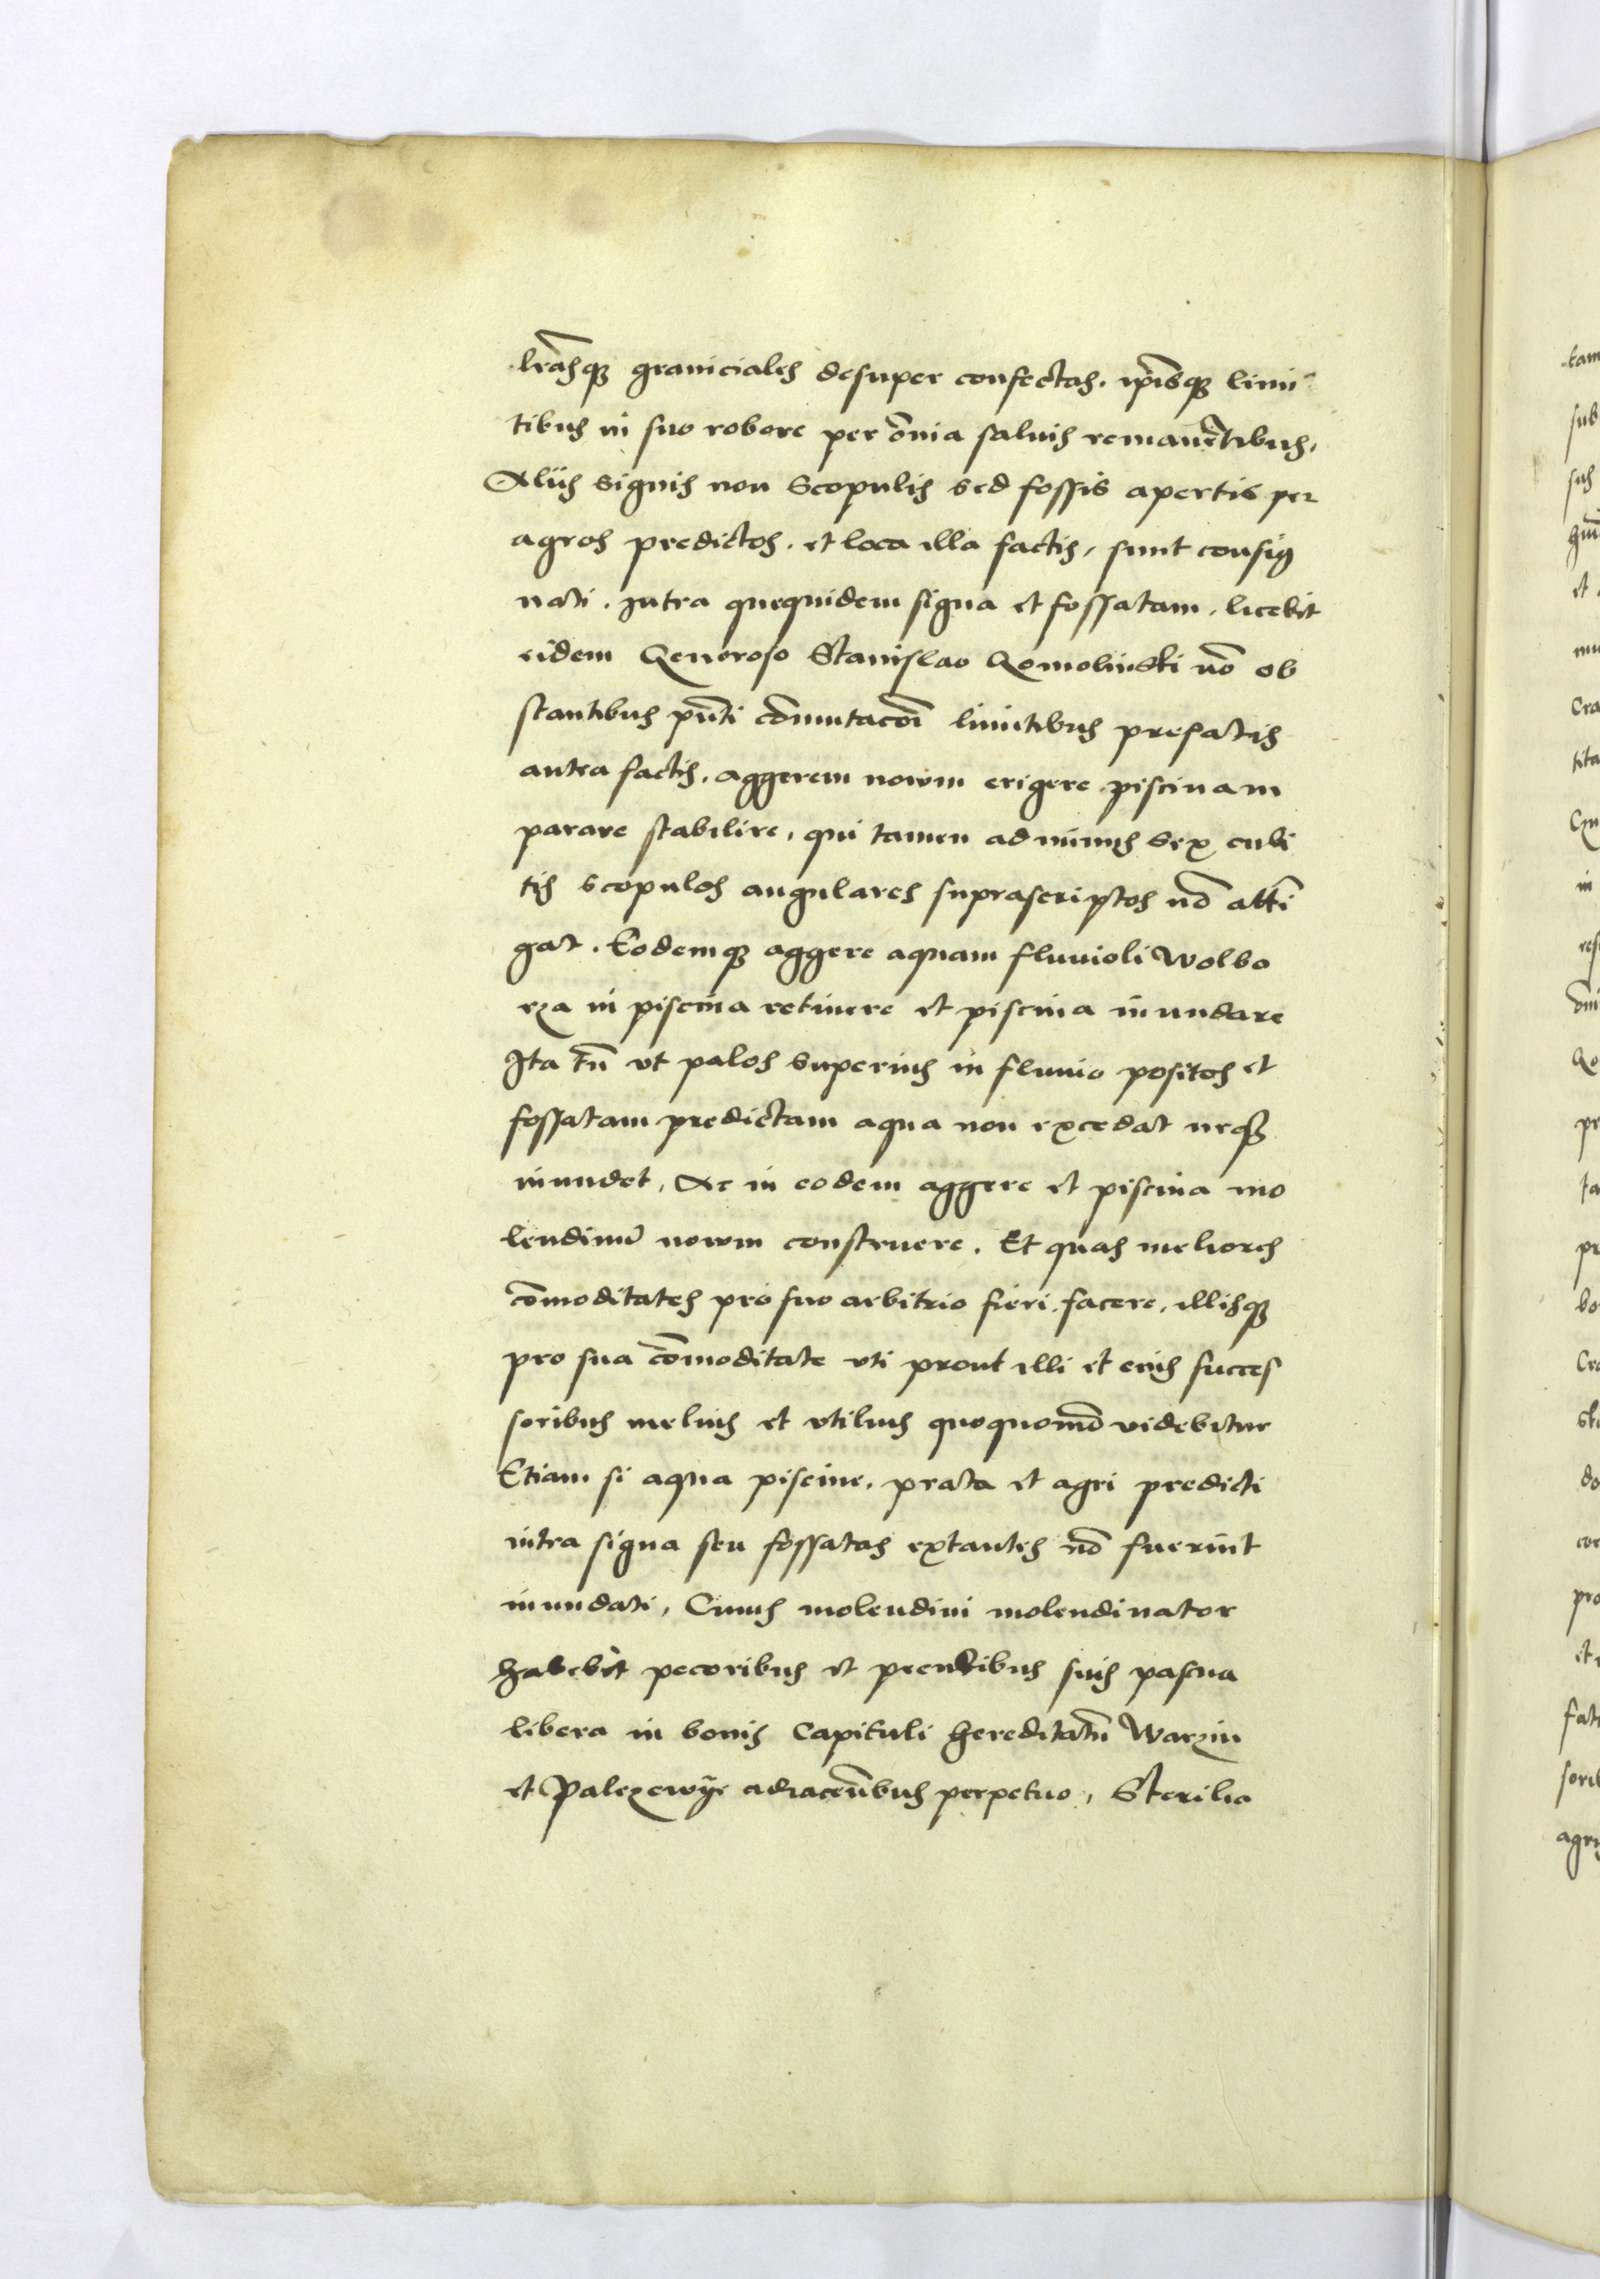 lrasque graniciales desuper confectas, ipsisque limi
tibus in suo robore per omnia salvis remanentibus,
Aliis signis non scopulis sed fossis apertis per
agros predictos, et loca illa factis, sunt consig
nati. Intra quequidem signa et fossatam, licebit
eidem Generoso Stanislao Gomolinski no ob
stantibus pnti comutacoi limitibus prefatis
antea factis, aggerem nowm erigere piscinam
parare stabilire, qui tamen ad minus sex cubi
tis scopulos angulares suprascriptos no atti
gat. Eodemque aggere aquam fluvioli Wolbo
rza in piscina retinere et piscina inundare
Ita tn ut palos superius in fluvio positos et
fossatam predictam aqua non excedat neque
inundet, Ac in eodem aggere et piscina mo
lendinu nowm construere. Et quas meliores
comoditates pro suo arbitrio fieri facere, illisque
pro sua comoditate uti prout illi et eius succes
soribus melius et utilius quoquomo videbitur
Etiam si aqua piscine, prata et agri predicti
intra signa seu fossatas extantes no fuerint
inundati, Cuius molendini molendinator
habebit pecoribus et pecudibus suis pascua
libera in bonis Capituli hereditatu Warzin
et Palczewye adiacentibus perpetuo, Sterilia